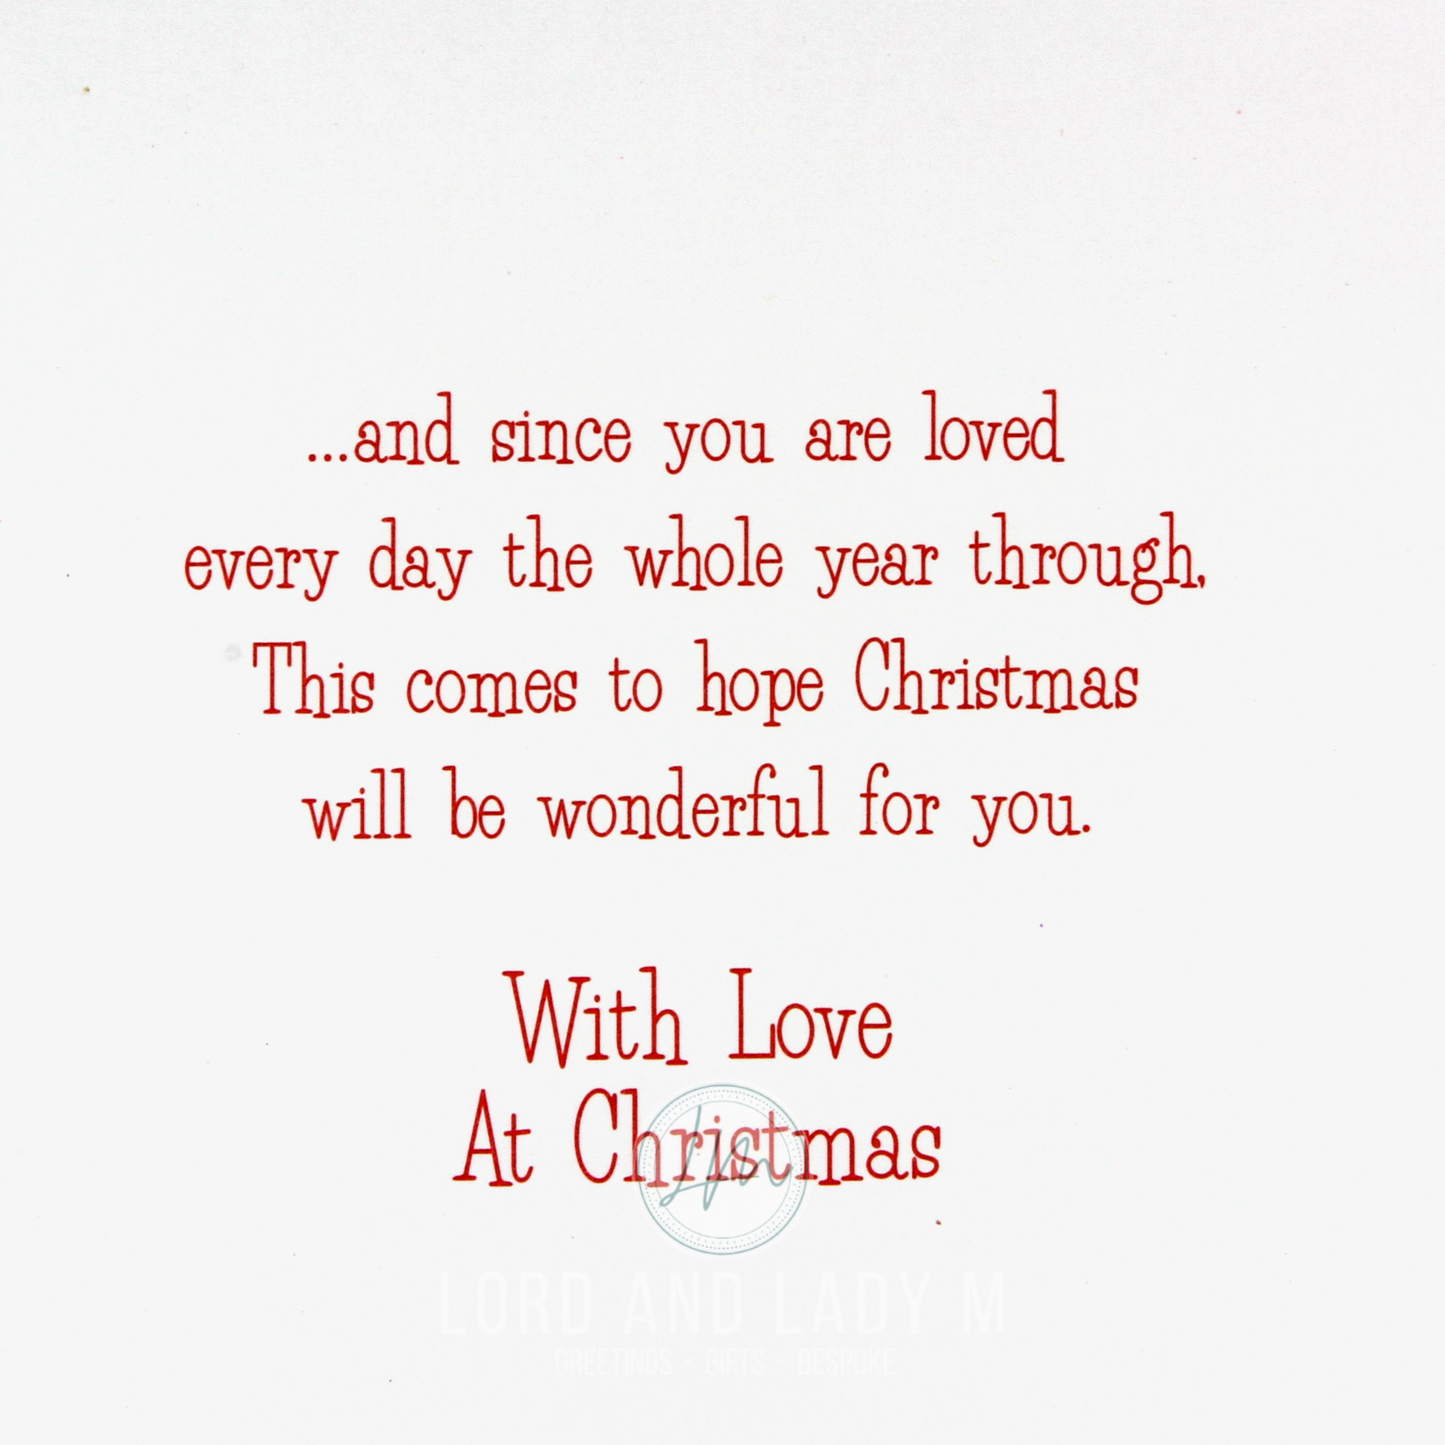 ...and since you are loved
every day the whole year through,
This comes to hope Christmas
will be wonderful for you.
With Love
At Christmas
LM
LORD AND LADY M
GREETINGS - GIFTS - BESPOKE